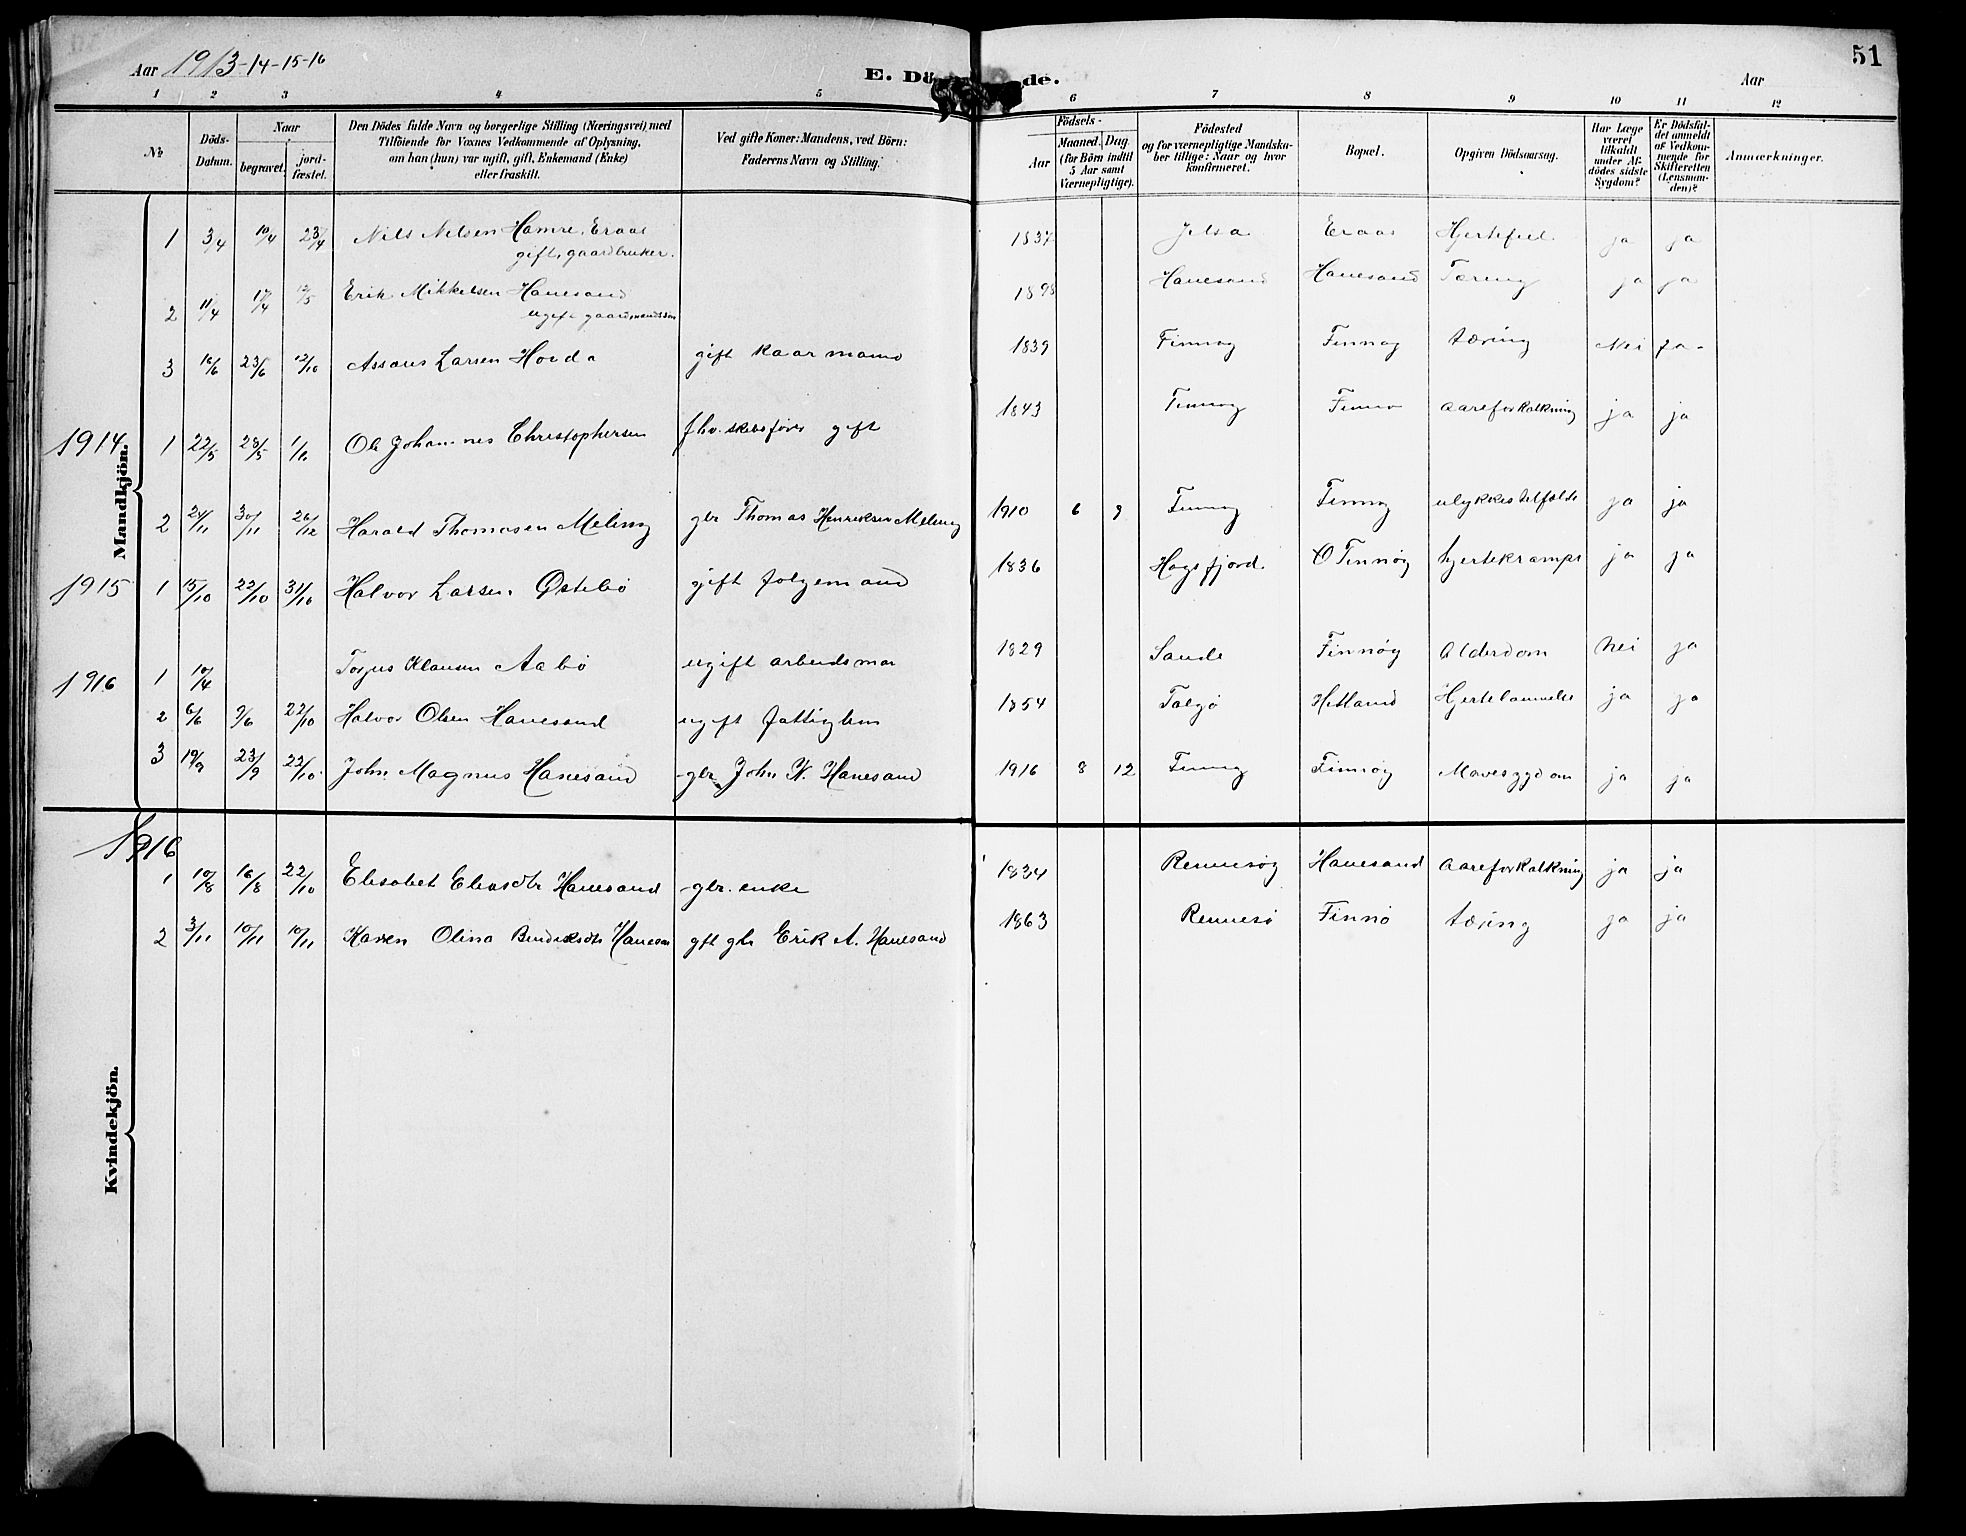 Aar 1913-14-15-16
E. Dö de.
51
Aar
1 2 3 4 5 6 7 8 9 10 11 12
№
Döds-Datum.
Naar
begravet.
jord-fæstet.
Den Dödes fulde Navn og borgerlige Stilling (Næringsvei) med
Tilföiende for Voxnes Vedkommende af Oplysning,
om han (hun) var ugift, gift, Enkemand (Enke)
eller fraskilt.
Ved gifte Koner: Mandens, ved Börn:
Faderens Navn og Stilling.
Födsels-
Aar
Maaned. Dag.
(for Börn indtil
5 Aar samt
Værnepligtige).
Födested
og for værnepligtige Mandska-
ber tillige: Naar og hvor
konfirmeret.
Bopæl.
Opgiven Dödsaarsag.
Har Læge
været
tilkaldt
under Af-
dödes sidste
Sygdom?
Er Dödsfal-
det anmeldt
af Vedkom-
mende for
Skifteretten
(Lensman-
den)?
Anmærkninger.
Mandkjön.
1 3/4 10/4 23/4 Nils Nilsen Hamre. Eraas 1837 Jelsa Eraas Hjertefeil ja ja
gift, gaardbruker.
2 11/4 17/4 12/5 Erik Mikkelsen Hanesand 1898 Hanesand Hanesand Tæring ja ja
ugift gaardmandssøn
3 16/6 23/6 12/10 Assaus Larsen Hovda gift kaarmand 1839 Finnøy Finnøy tæring Nei Ja-
1914. 1 22/5 28/5 Ole Johannes Christophersen fhv. skibsfører gift 1843 Finnøy Finnø aareforkalkning ja ja
2 24/11 30/11 26/12 Harald Thomasen Meling gbr Thomas Henriksen Meling 1910 6 9 Finnøy Finnøy ulykkestilfælde ja ja
1915 1 15/10 22/10 31/10 Halvor Larsen Østebø gift følgemand 1836 Høgsfjord. Ø Finnøy hjertekrampe ja ja
1916 1 10/4 Torjus Klausen Aabø ugift arbeidsman 1829 Sande Finnøy Alderdom Nei ja
2 6/6 9/6 22/10 Halvor Olsen Hanesand ugift fattiglem 1854 Talgø Hetland Hjertelammelse ja ja
3 19/9 23/9 22/10 John Magnus Hanesand gbr John N. Hanesand 1916 8 12 Finnøy Finnøy Mavesygdom ja ja
Kvindekjön.
1916
1 10/8 16/8 22/10 Elisabet Eliasdtr Hanesand gbr. enke 1834 Rennesøy Hanesand aareforkalkning ja ja
2 3/11 10/11 10/11 Karen Olina Bendiksdtr Hanesan gft gbr Erik A. Hanesand 1863 Rennesø Finnø tæring ja ja